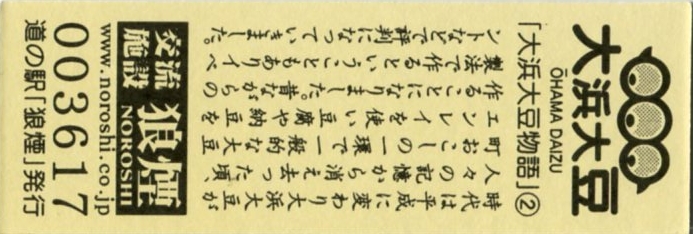 大浜大豆
ŌHAMA DAIZU
「大浜大豆物語」②
時代は平成に変わり大浜大豆が
人々の記憶から消え去った頃、
町おこしの一環で一般的な大豆
エンレイを使い豆腐や納豆を
作ることになりました。昔ながらの
製法で作るということもありイベ
ントなどで評判になっていきました。
交流施設 狼煙
NOROSHI
www.noroshi.co.jp
003617
道の駅「狼煙」発行